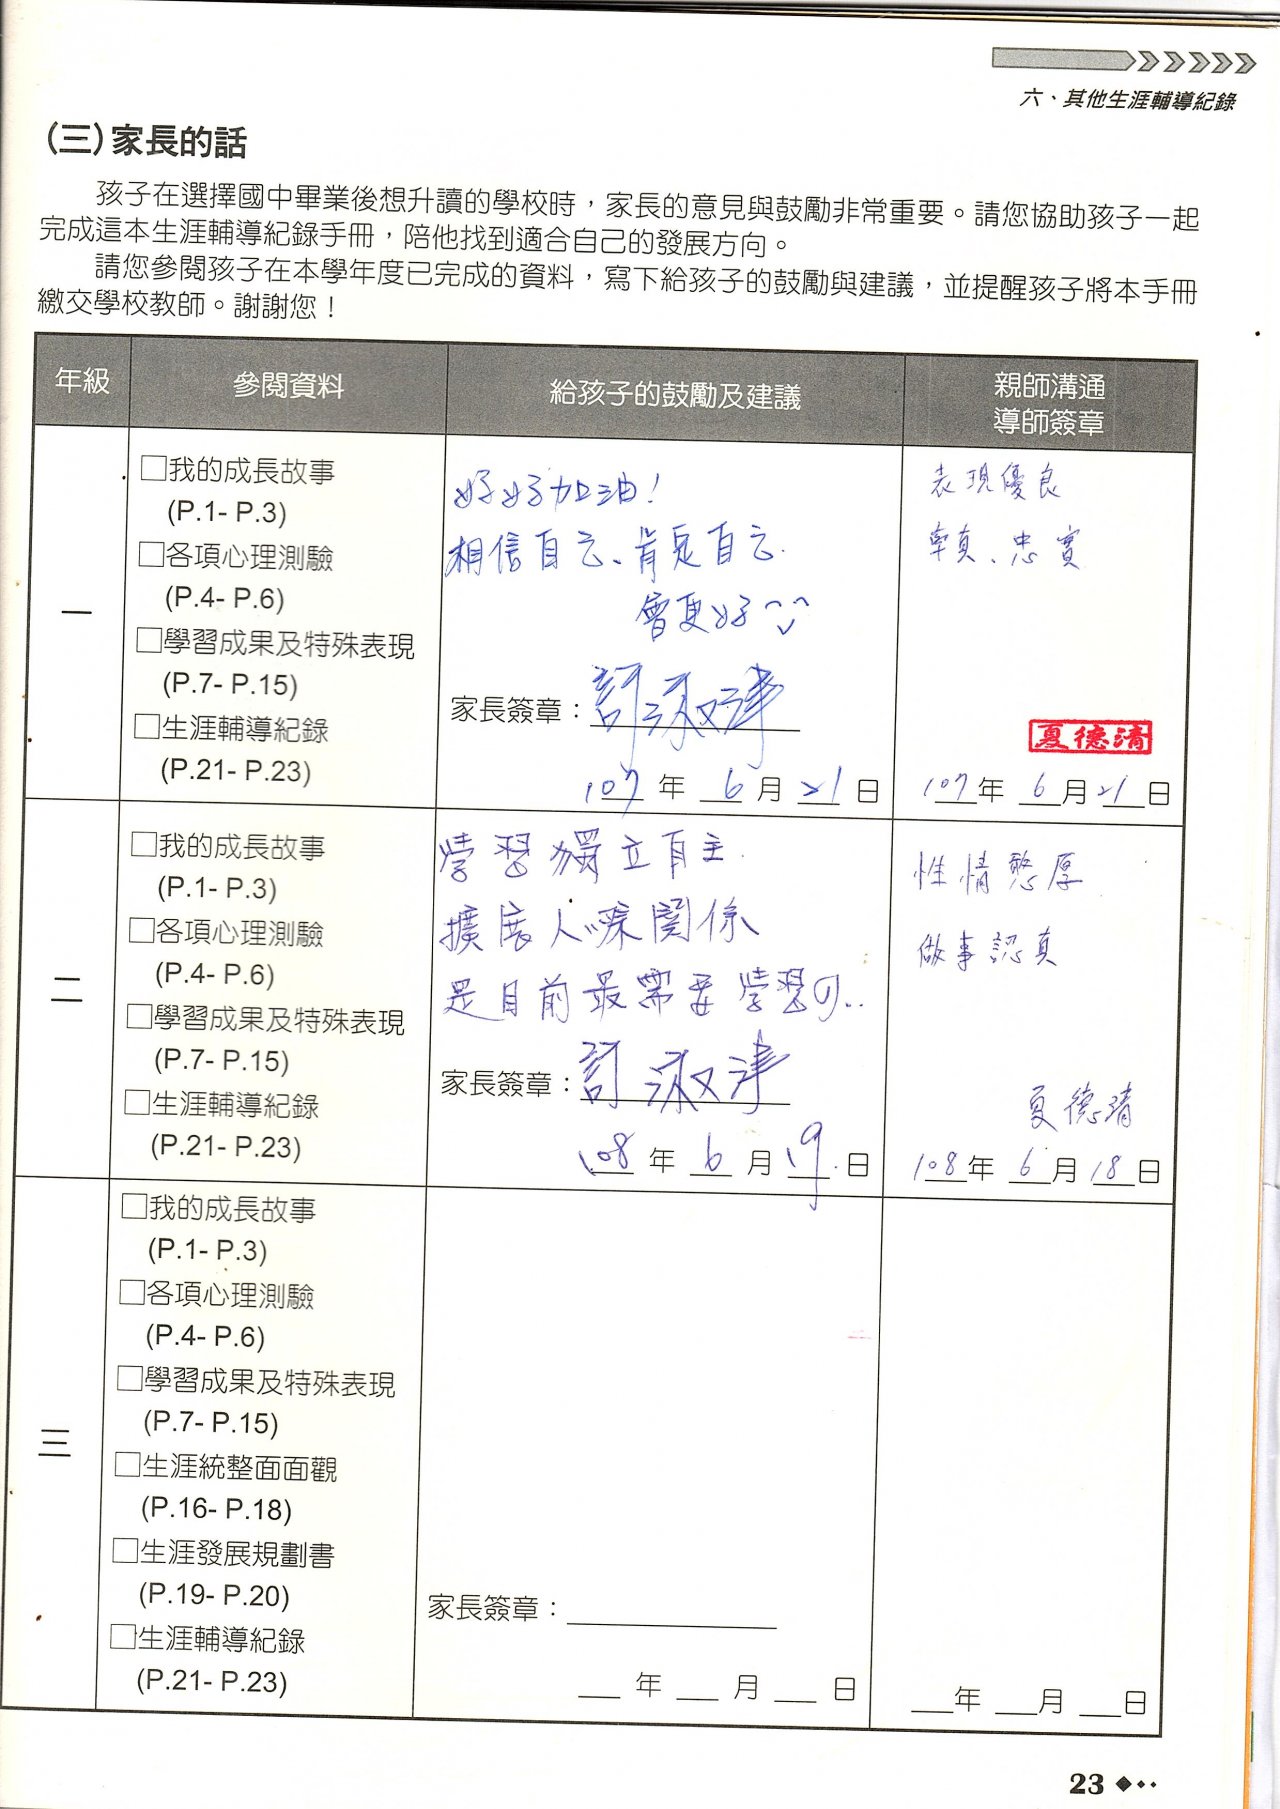 六、其他生涯輔導紀錄
(三)家長的話
孩子在選擇國中畢業後想升讀的學校時，家長的意見與鼓勵非常重要。請您協助孩子一起
完成這本生涯輔導紀錄手冊，陪他找到適合自己的發展方向。
請您參閱孩子在本學年度已完成的資料，寫下給孩子的鼓勵與建議，並提醒孩子將本手冊
繳交學校教師。謝謝您！
年級
參閱資料
給孩子的鼓勵及建議
親師溝通
導師簽章
一
□我的成長故事
(P.1- P.3)
□各項心理測驗
(P.4- P.6)
□學習成果及特殊表現
(P.7- P.15)
□生涯輔導紀錄
(P.21- P.23)
好好加油！
相信自己、肯定自己.
會更好
家長簽章：許淑津
107年 6月21日
表現優良
、忠實
夏德清
107年 6月21日
二
□我的成長故事
(P.1- P.3)
□各項心理測驗
(P.4- P.6)
□學習成果及特殊表現
(P.7- P.15)
□生涯輔導紀錄
(P.21- P.23)
學習獨立自主.
擴展人際關係
是目前最需要學習的..
家長簽章：許淑津
108年 6月19日
性情憨厚
做事認真
夏德清
108年 6月18日
三
□我的成長故事
(P.1- P.3)
□各項心理測驗
(P.4- P.6)
□學習成果及特殊表現
(P.7- P.15)
□生涯統整面面觀
(P.16- P.18)
□生涯發展規劃書
(P.19- P.20)
□生涯輔導紀錄
(P.21- P.23)
家長簽章：
年 月 日
年 月 日
23